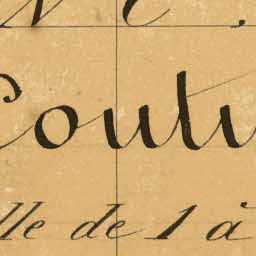 N C.
Coutu
lle de 1 à